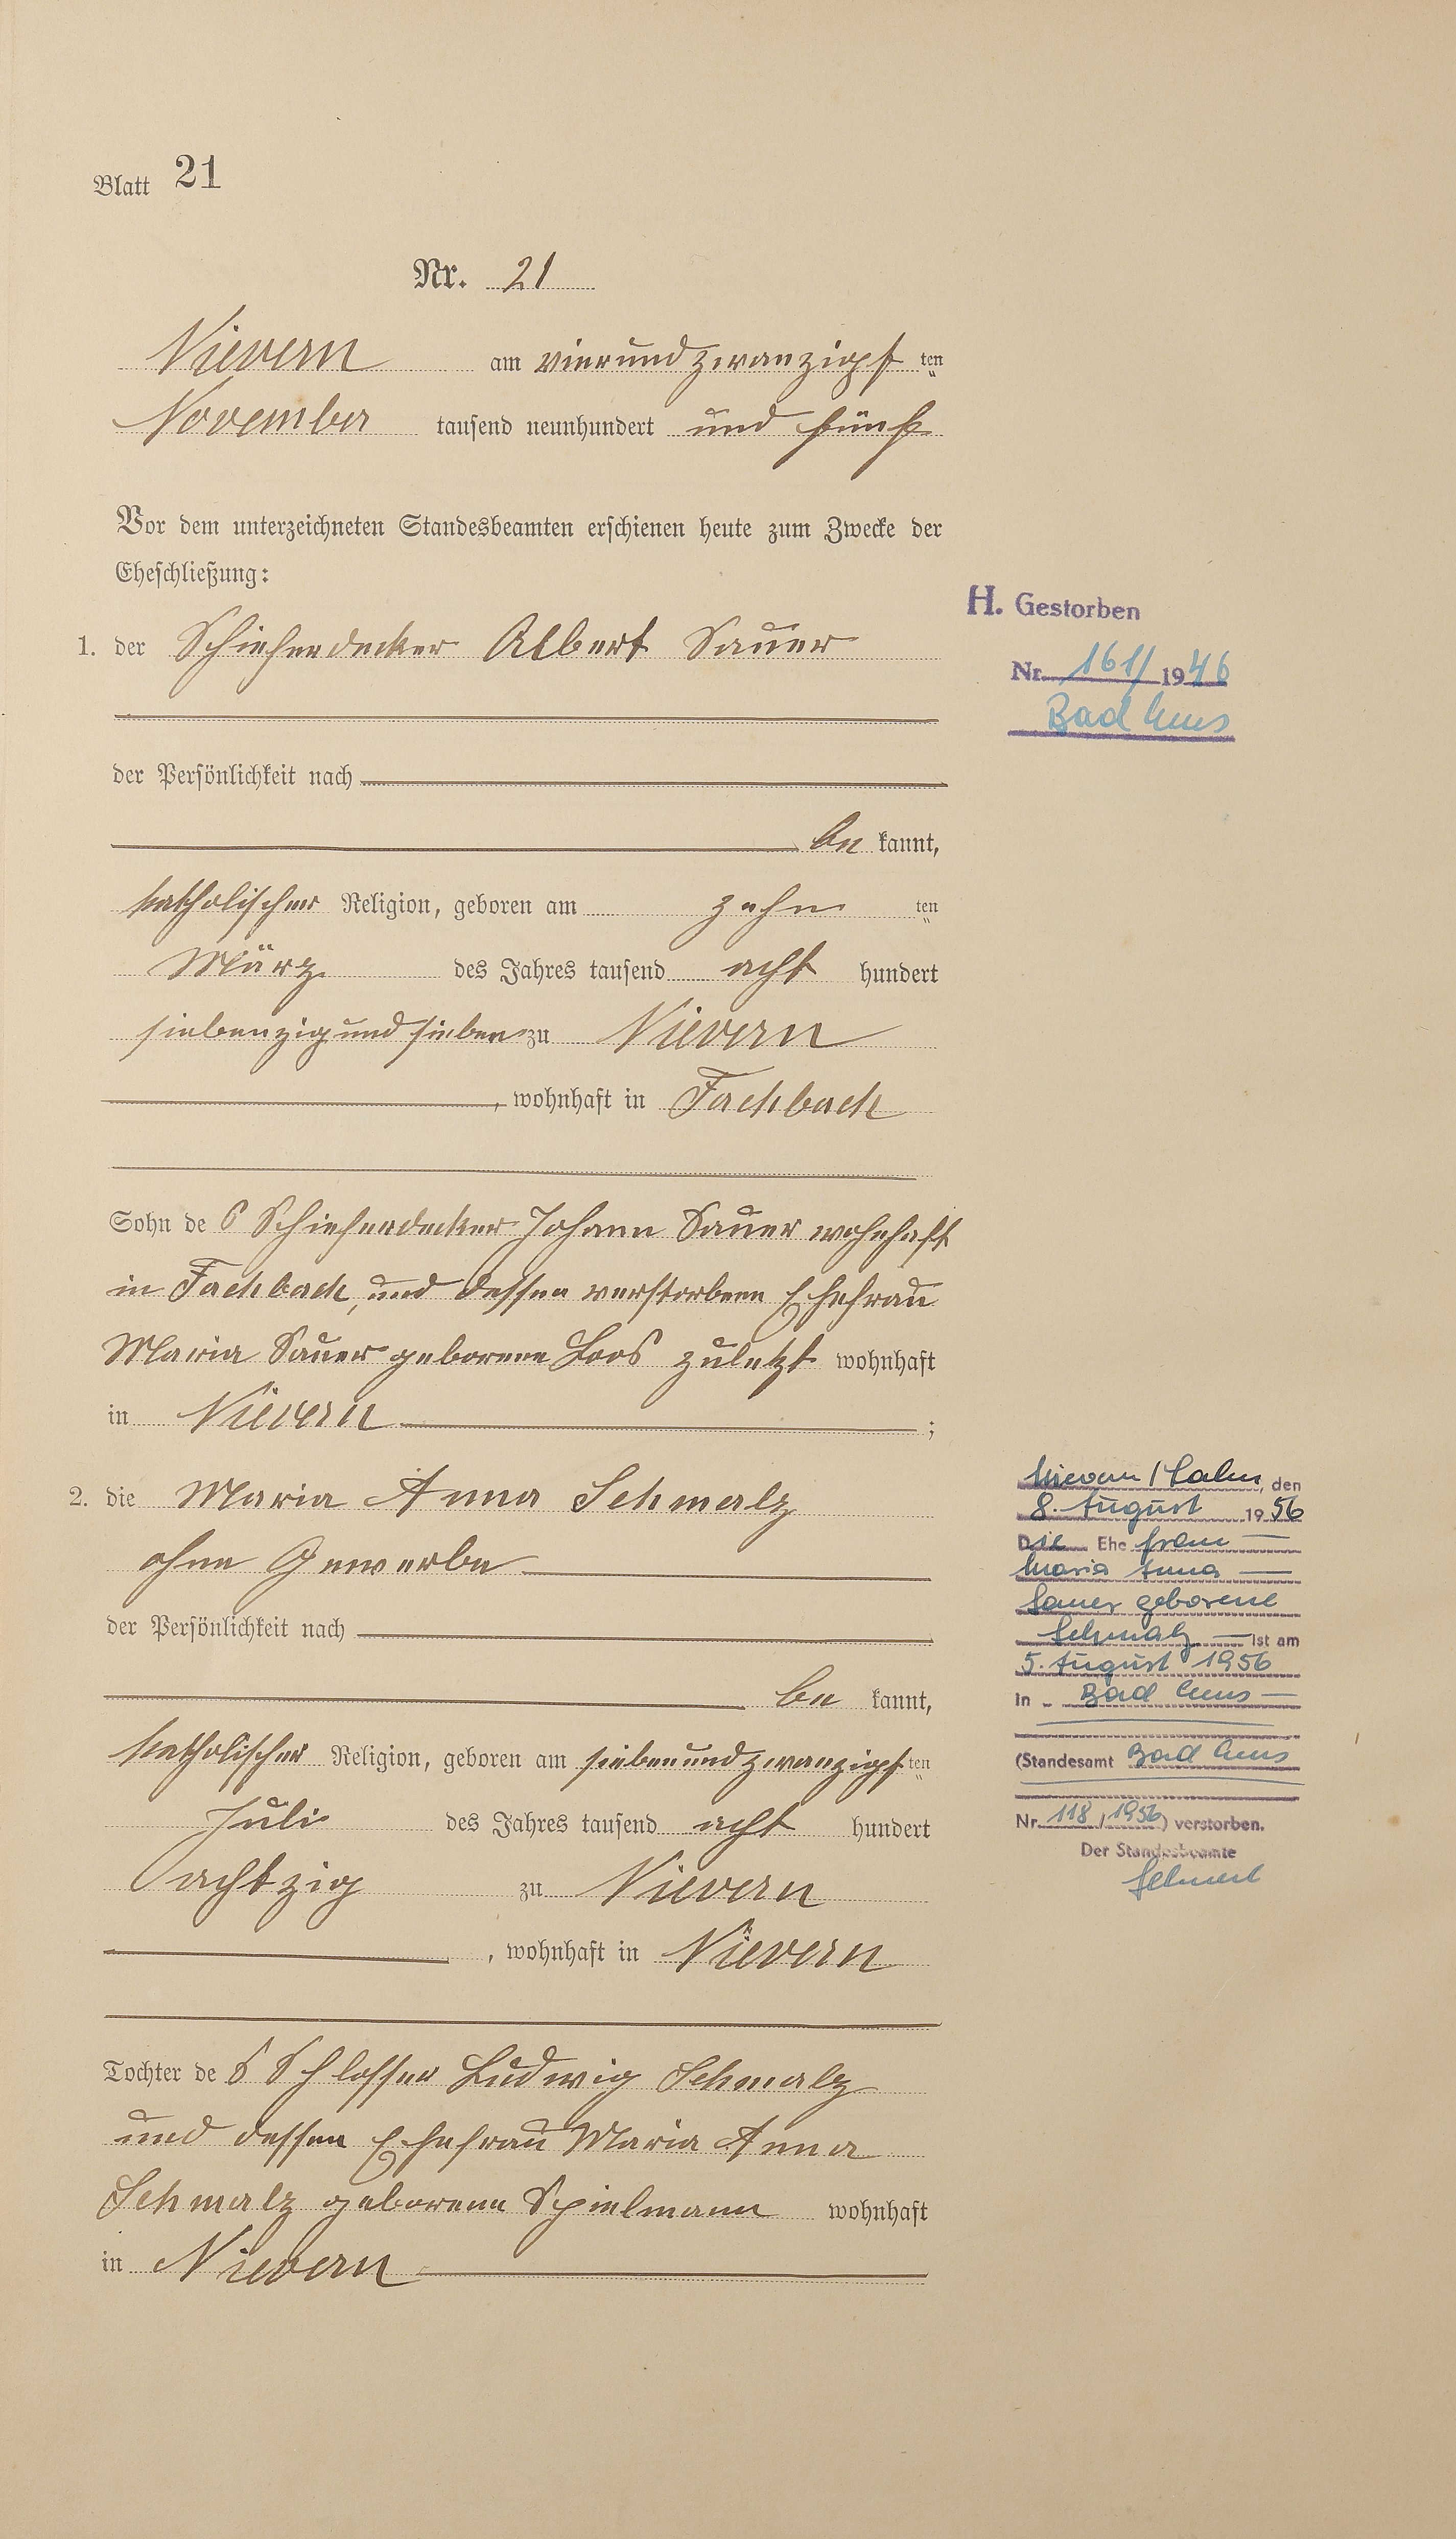 Blatt 21
Nr. 21
Nievern am vierundzwanzigst ten
November tausend neunhundert und fünf
Vor dem unterzeichneten Standesbeamten erschienen heute zum Zwecke der
Eheschließung:
1. der Schieferdecker Albert Sauer
der Persönlichkeit nach
be kannt,
katholischer Religion, geboren am zehn ten
März des Jahres tausend acht hundert
siebenzig und sieben zu Nievern
, wohnhaft in Fachbach
Sohn de s Schieferdecker Johann Sauer wohnhaft
in Fachbach, und dessen verstorbene Ehefrau
Maria Sauer geborene Loos zuletzt wohnhaft
in Nievern ;
2. die Maria Anna Schmalz
ohne Gewerbe
der Persönlichkeit nach
be kannt,
katholischer Religion, geboren am siebenundzwanzigst ten
Juli des Jahres tausend acht hundert
achtzig zu Nievern
, wohnhaft in Nievern
Tochter de s Schlosser Ludwig Schmalz
und dessen Ehefrau Maria Anna
Schmalz geborene Spielmann wohnhaft
in Nievern
H. Gestorben
Nr. 161/ 1946
Bad Ems
Nievern / Lahn, den
8. August 1956
Die Ehe frau
Maria Anna
Sauer geborene
Schmalz ist am
5. August 1956
in Bad Ems
(Standesamt Bad Ems
Nr. 118 / 1956) verstorben.
Der Standesbeamte